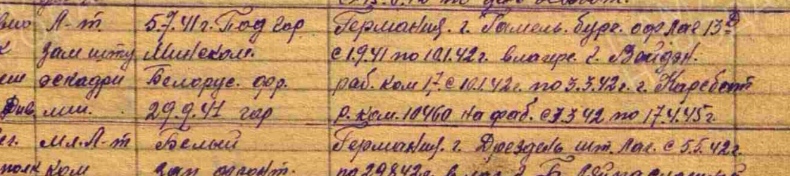 Л-т. 5.7.41г. Под гор Германия. г. Гамельбург. оф лаг 13Д
зам шту Минском. с 1.9.41 по 10.1.42г. в лагере г. Вейдэн.
эскадри Белорус. фр. раб. ком 17. с 10.1.42г. по 3.3.42г. г.
29.9.41 гор р. ком. 10460 на фаб. с 7.3.42 по 17.4.45г
Мл. Л-т Белый Германия. г. Дрезден шт. лаг. с 5.5.42г.
ком зап фронт. по 29.8.42г. в лаг. г.